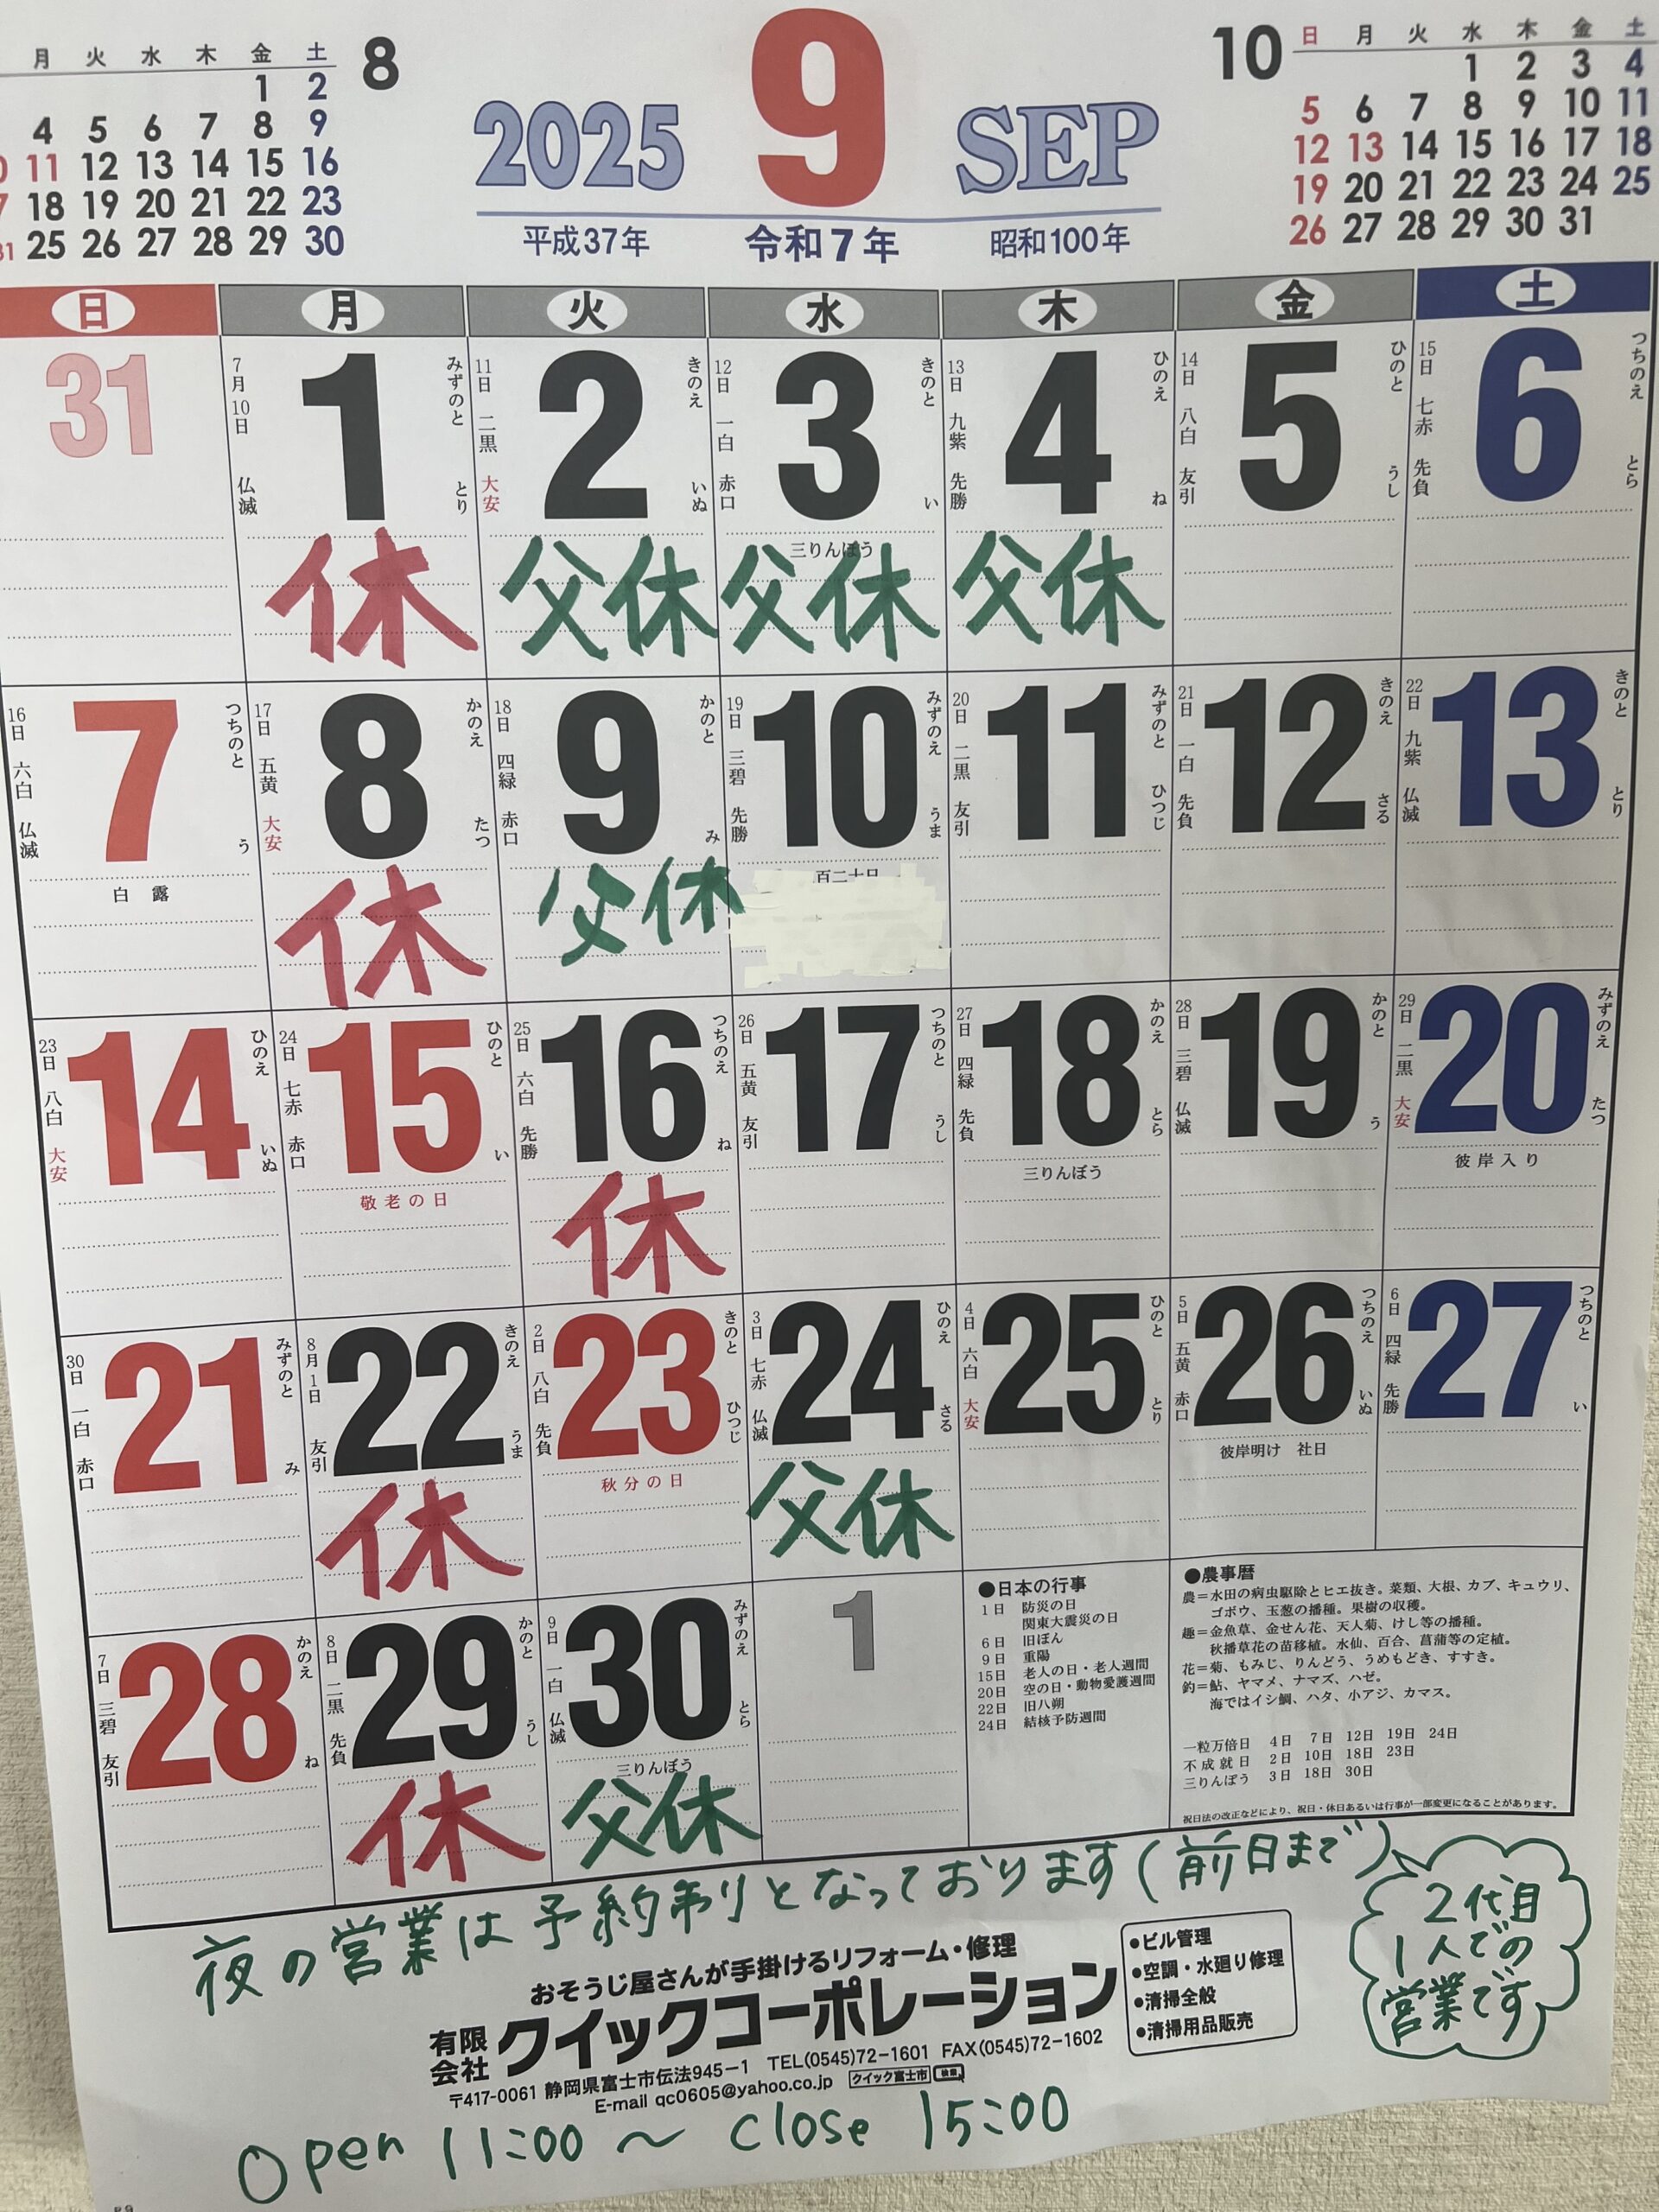 月 火 水 木 金 土
1 2
4 5 6 7 8 9
11 12 13 14 15 16
18 19 20 21 22 23
31 25 26 27 28 29 30
8
2025 9 SEP
平成37年 令和7年 昭和100年
10
日 月 火 水 木 金 土
1 2 3 4
5 6 7 8 9 10 11
12 13 14 15 16 17 18
19 20 21 22 23 24 25
26 27 28 29 30 31
日 月 火 水 木 金 土
31
7月10日 仏滅 1 みずのと とり
休
11日 二黒 大安 2 きのえ いぬ
父休
12日 一白 赤口 3 きのと い
三りんぼう
父休
13日 九紫 先勝 4 ひのえ ね
父休
14日 八白 友引 5 ひのと うし
15日 七赤 先負 6 つちのえ とら
16日 六白 仏滅 7 つちのと う
白露
17日 五黄 大安 8 かのえ たつ
休
18日 四緑 赤口 9 かのと み
父休
19日 三碧 先勝 10 みずのえ うま
百二十日
20日 二黒 友引 11 みずのと ひつじ
21日 一白 先負 12 きのえ さる
22日 九紫 仏滅 13 きのと とり
23日 八白 大安 14 ひのえ いぬ
24日 七赤 赤口 15 ひのと い
敬老の日
25日 六白 先勝 16 つちのえ ね
休
26日 五黄 友引 17 つちのと うし
27日 四緑 先負 18 かのえ とら
三りんぼう
28日 三碧 仏滅 19 かのと う
29日 二黒 大安 20 みずのえ たつ
彼岸入り
30日 一白 赤口 21 みずのと み
8月1日 友引 22 きのえ うま
休
2日 八白 先負 23 きのと ひつじ
秋分の日
3日 七赤 仏滅 24 ひのえ さる
父休
4日 六白 大安 25 ひのと とり
5日 五黄 赤口 26 つちのえ いぬ
彼岸明け 社日
6日 四緑 先勝 27 つちのと い
7日 三碧 友引 28 かのえ ね
8日 二黒 先負 29 かのと うし
休
9日 一白 仏滅 30 みずのえ とら
三りんぼう
父休
1
●日本の行事
1日 防災の日
関東大震災の日
6日 旧ぼん
9日 重陽
15日 老人の日・老人週間
20日 空の日・動物愛護週間
22日 旧八朔
24日 結核予防週間
●農事暦
農=水田の病虫駆除とヒエ抜き。菜類、大根、カブ、キュウリ、
ゴボウ、玉葱の播種。果樹の収穫。
趣=金魚草、金せん花、天人菊、けし等の播種。
秋播草花の苗移植。水仙、百合、菖蒲等の定植。
花=菊、もみじ、りんどう、うめもどき、すすき。
釣=鮎、ヤマメ、ナマズ、ハゼ。
海ではイシ鯛、ハタ、小アジ、カマス。
一粒万倍日 4日 7日 12日 19日 24日
不成就日 2日 10日 18日 23日
三りんぼう 3日 18日 30日
祝日法の改正などにより、祝日・休日あるいは行事が一部変更になることがあります。
夜の営業は予約制りとなっております(前日まで)
2代目
1人での
営業です
おそうじ屋さんが手掛けるリフォーム・修理
有限会社 クイックコーポレーション
〒417-0061 静岡県富士市伝法945-1 TEL(0545)72-1601 FAX(0545)72-1602
E-mail qc0605@yahoo.co.jp クイック富士市 検索
●ビル管理
●空調・水廻り修理
●清掃全般
●清掃用品販売
Open 11:00 ～ close 15:00